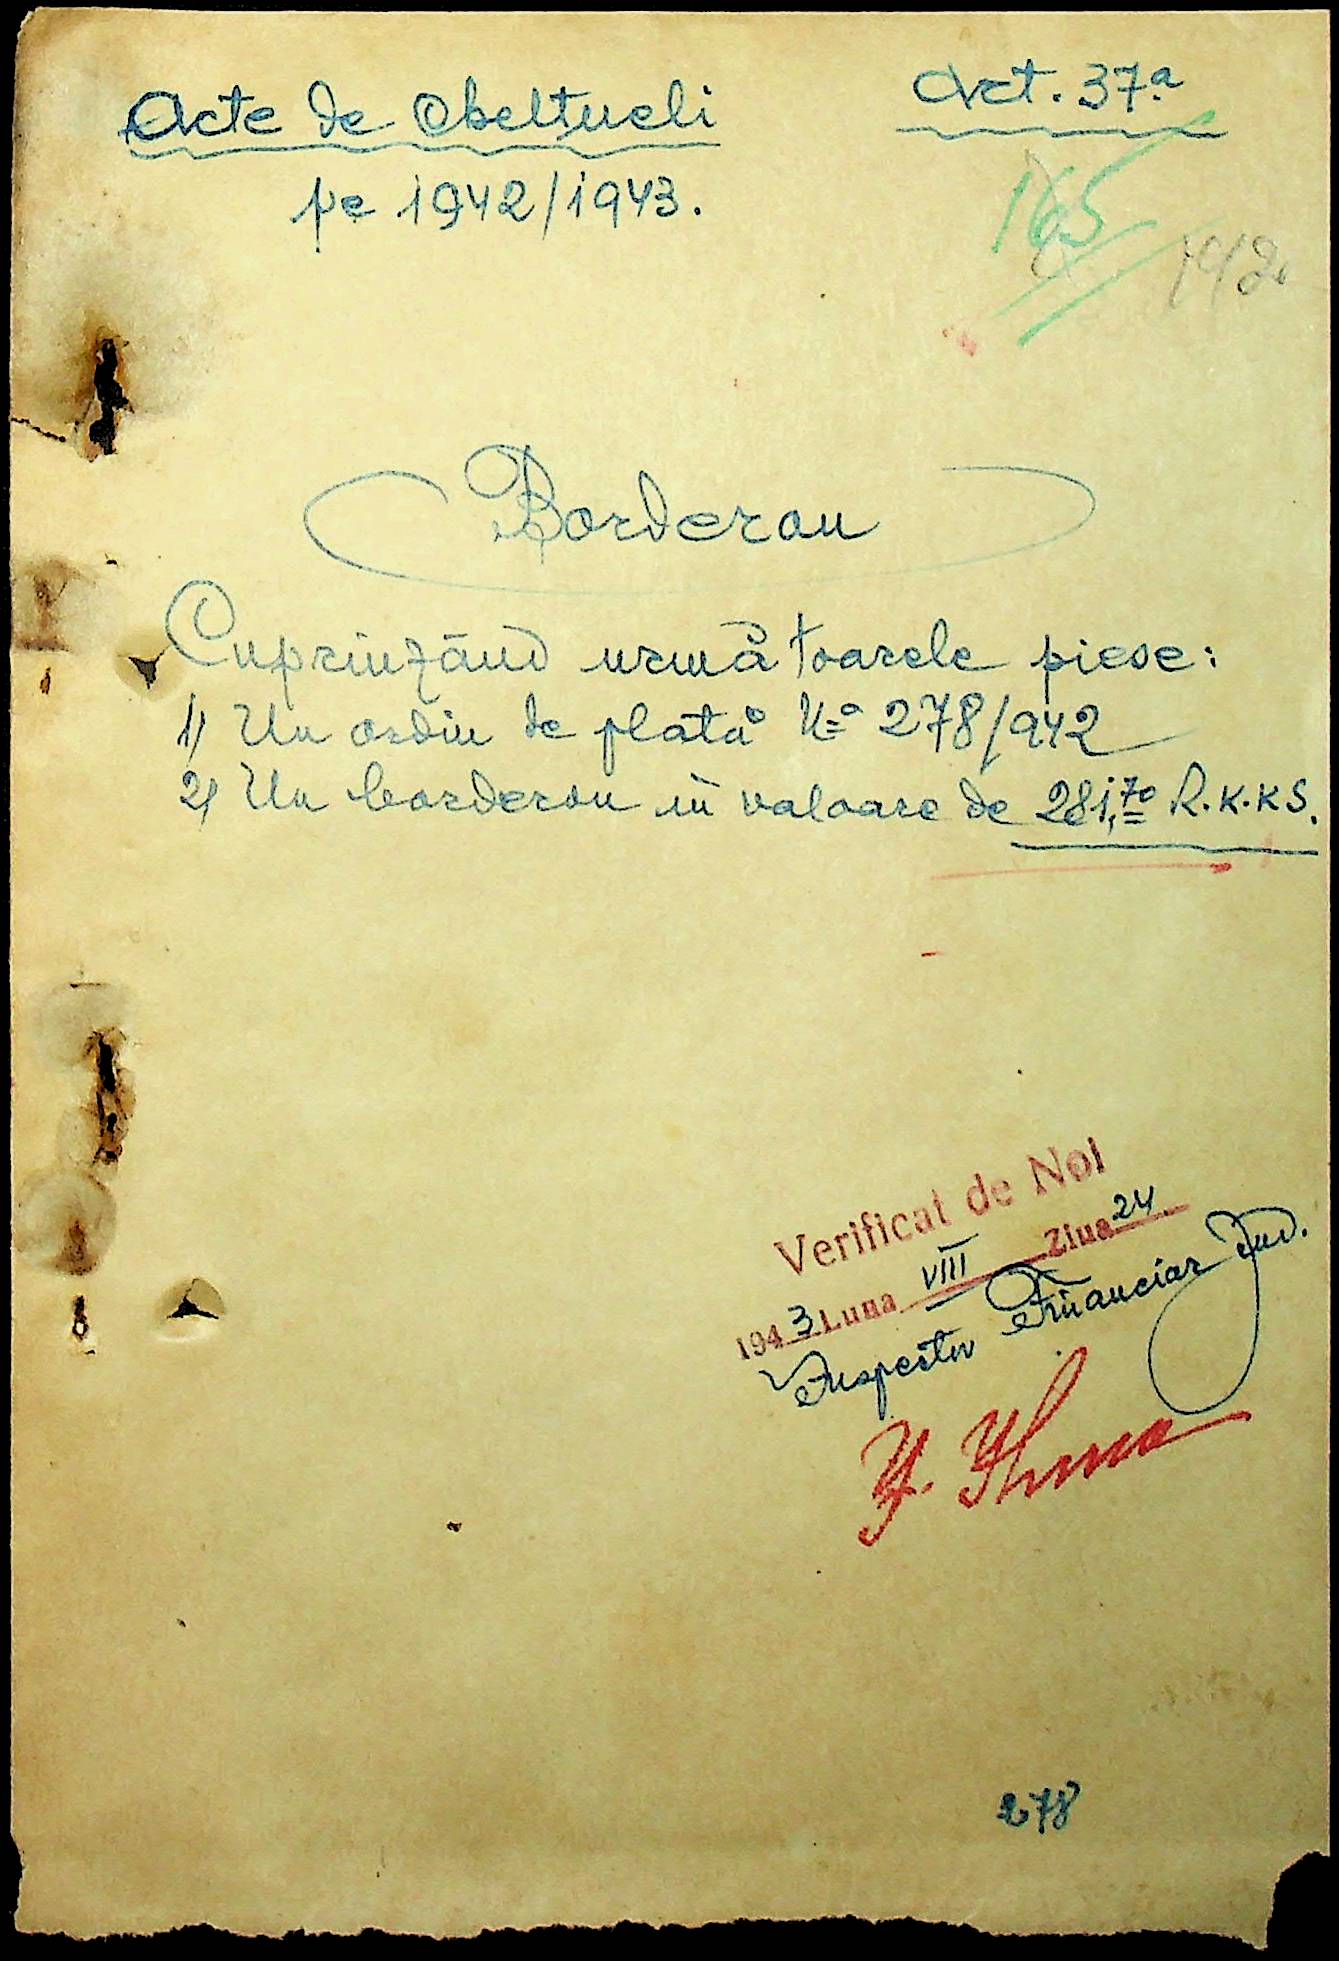 Acte de Cheltueli
Art. 37ª
pe 1942/1943.
165
142
Borderou
Cuprinzând următoarele piese:
1) Un ordin de plată Nº 278/942
2) Un borderou în valoare de 281,70 R.K.KS.
Verificat de Noi
1943 Luna VIII Ziua 24
Inspector Financiar Jud.
278